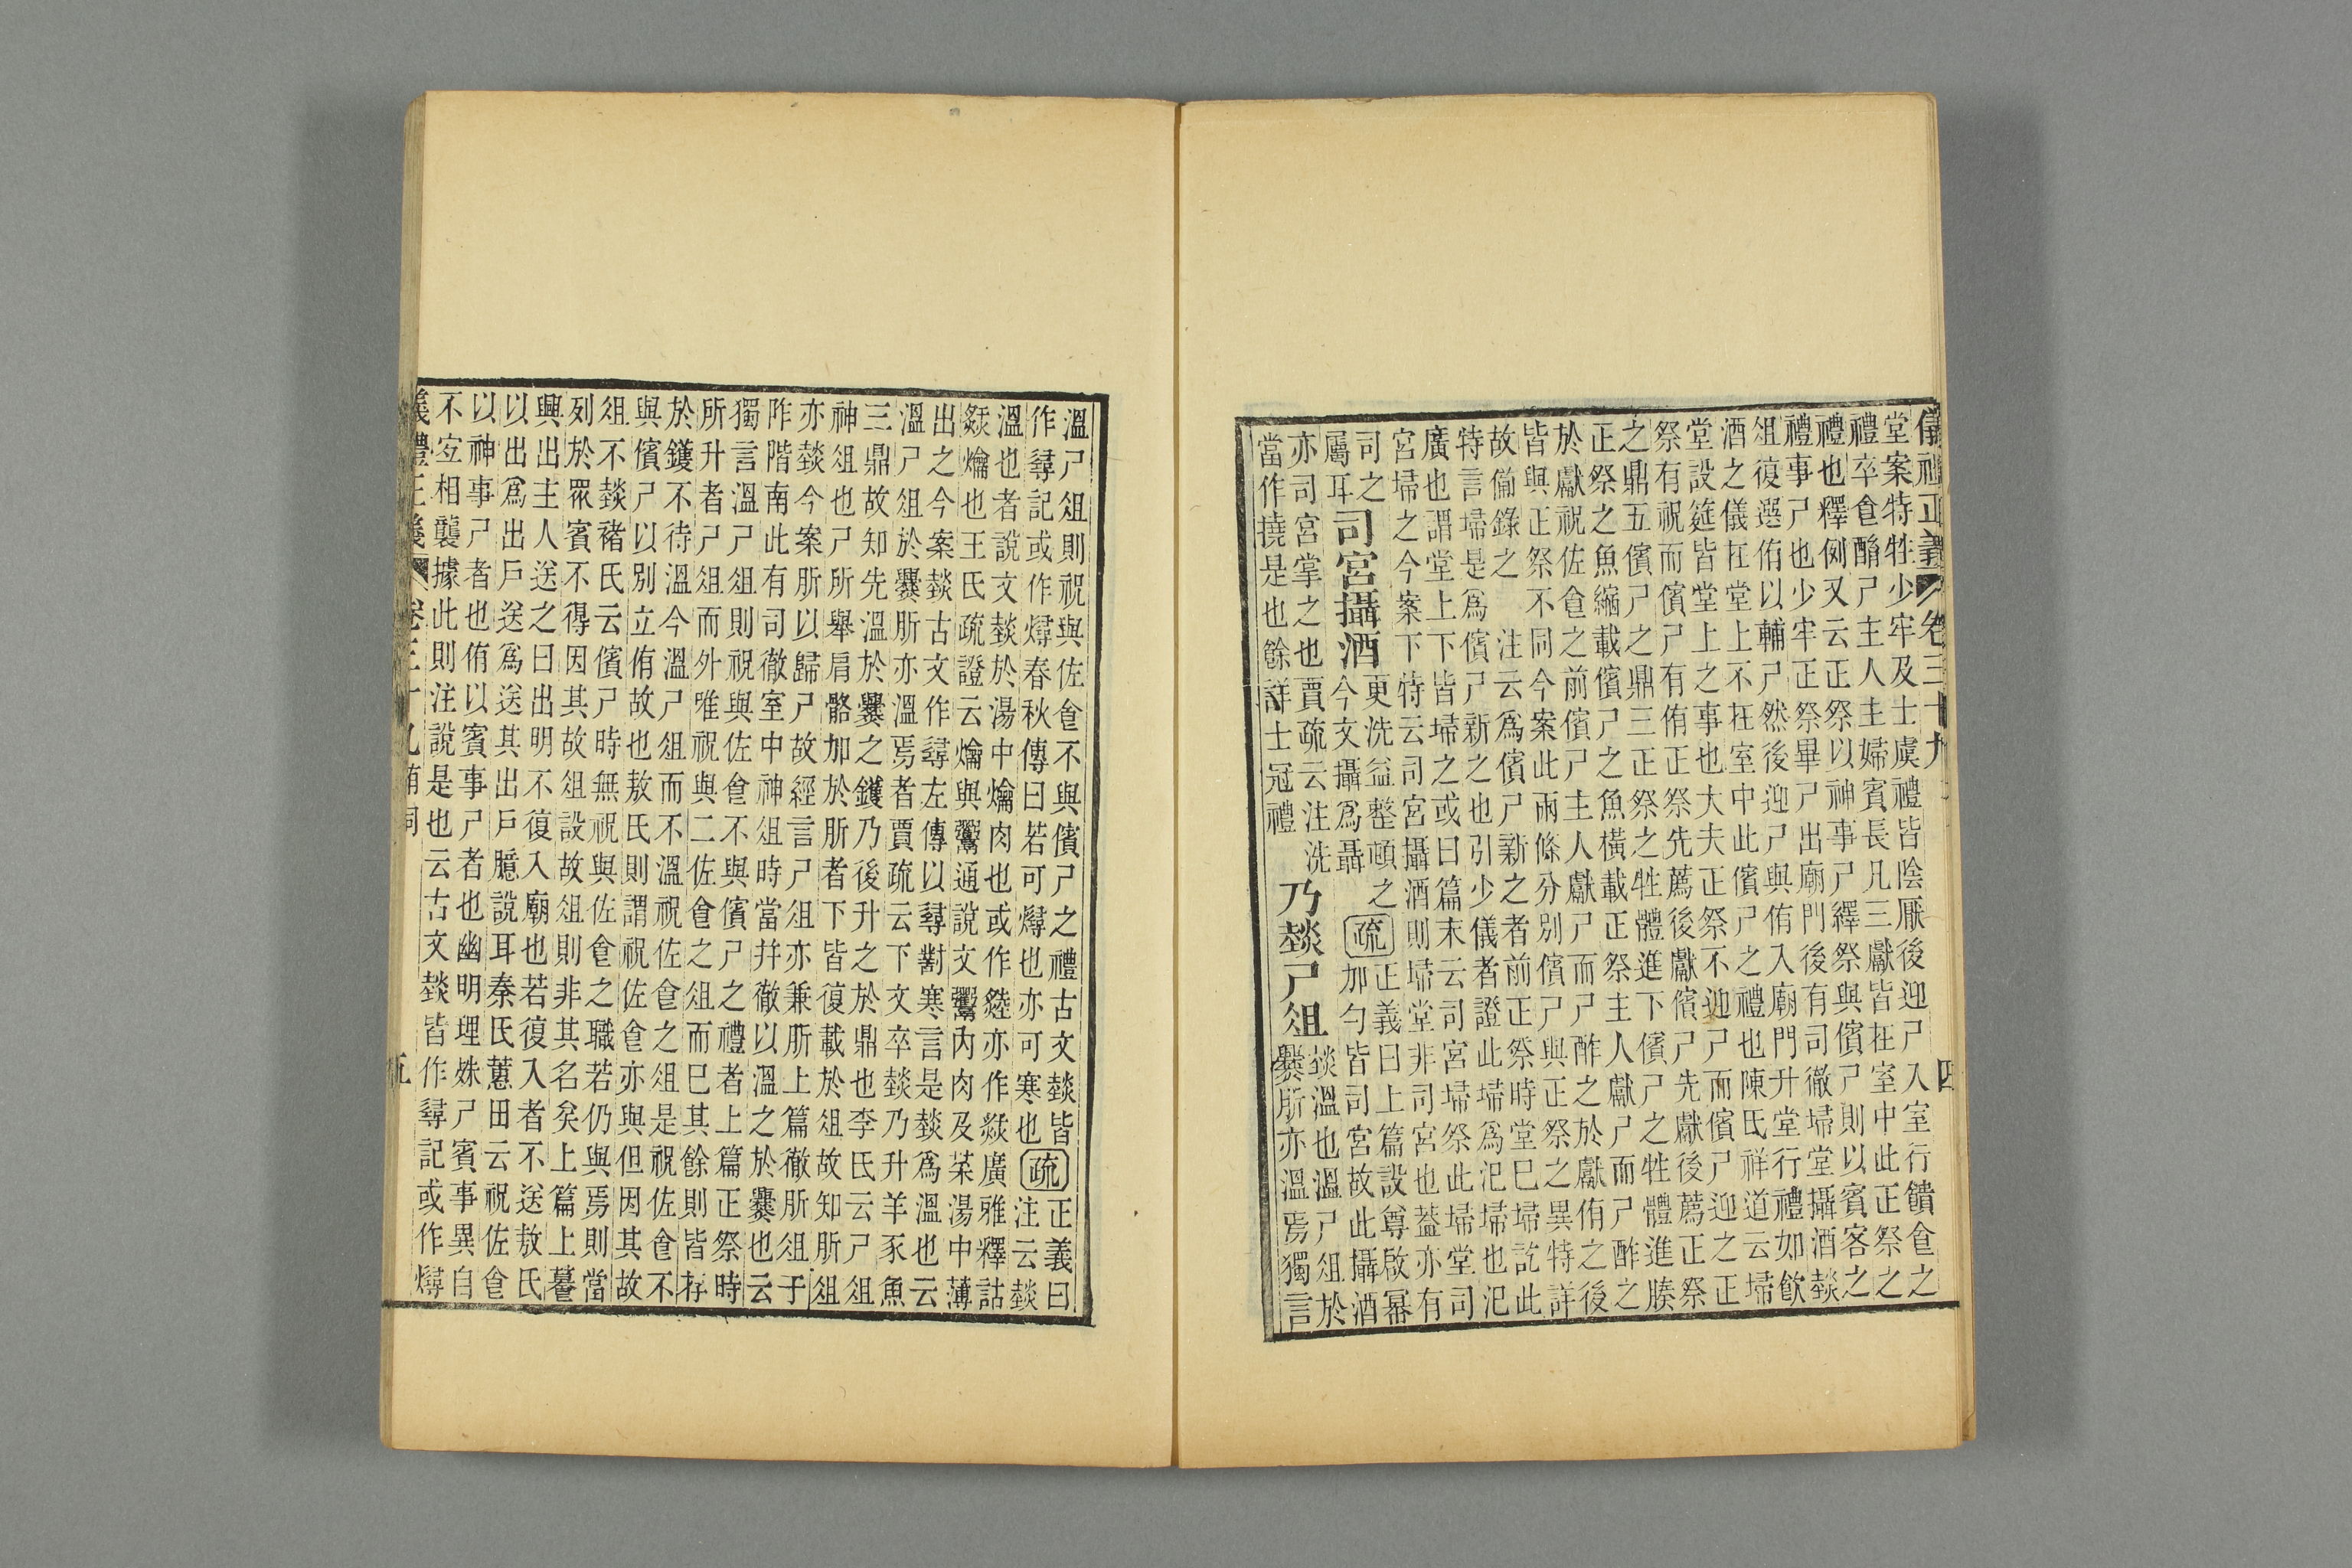 儀禮正義 卷三十九 四
堂案特牲少牢及士虞禮皆陰厭後迎尸入室行饋食之
禮卒食酳尸主人主婦賓長凡三獻皆在室中此正祭之
禮也釋例又云正祭以神事尸繹祭與儐尸則以賓客之
禮事尸也少牢正祭畢尸出廟門後有司徹埽堂攝酒燅
俎復選侑以輔尸然後迎尸與侑入廟門升堂行禮如飲
酒之儀在堂上不在室中此儐尸之禮也陳氏祥道云埽
堂設筵皆堂上之事也大夫正祭不迎尸而儐尸迎之正
祭有祝而儐尸有侑正祭先薦後獻儐尸先獻後薦正祭
之鼎五儐尸之鼎三正祭之牲體進下儐尸之牲體進腠
正祭之魚縮載儐尸之魚橫載正祭主人獻尸而尸酢之
於獻祝佐食之前儐尸主人獻尸而尸酢之於獻侑之後
皆與正祭不同今案此兩條分別儐尸與正祭之異特詳
故備錄之 注云爲儐尸新之者前正祭時堂巳埽訖此
特言埽是爲儐尸新之也引少儀者證此埽爲汜埽也汜
廣也謂堂上下皆埽之或曰篇末云司宮埽祭此埽堂司
宮埽之今案下特云司宮攝酒則埽堂非司宮也蓋亦有
司之屬耳司宮攝酒更洗益整頓之今文攝爲聶疏正義曰上篇設尊啟冪加勺皆司宮故此攝酒
亦司宮掌之也賈疏云注洗當作撓是也餘詳士冠禮乃燅尸俎燅溫也溫尸俎於爨肵亦溫焉獨言
溫尸俎則祝與佐食不與儐尸之禮古文燅皆
作尋記或作燖春秋傳曰若可燖也亦可寒也疏正義曰注云燅
溫也者說文燅於湯中爚肉也或作𤑔亦作燚廣雅釋詁
爚也王氏疏證云爚與鬻通說文鬻內肉及菜湯中薄
出之今案燅古文作尋左傳以尋對寒言是燅爲溫也云
溫尸俎於爨肵亦溫焉者賈疏云下文卒燅乃升羊豕魚
三鼎故知先溫於爨之鑊乃後升之於鼎也李氏云尸俎
神俎也尸所舉肩骼加於肵者下皆復載於俎故知肵俎
亦燅今案肵以歸尸故經言尸俎亦兼肵上篇徹肵俎于
阼階南此有司徹室中神俎時當幷徹以溫之於爨也云
獨言溫尸俎則祝與佐食不與儐尸之禮者上篇正祭時
所升者尸俎而外唯祝與二佐食之俎而巳其餘則皆存
於鑊不待溫今溫尸俎而不溫祝佐食之俎是祝佐食不
與儐尸以別立侑故也敖氏則謂祝佐食亦與但因其故
俎不燅褚氏云儐尸時無祝與佐食之職若仍與焉則當
列於眾賓不得因其故俎設故俎則非其名矣上篇上𦫵
興出主人送之曰出明不復入廟也若復入者不送敖氏
以出爲出戶送爲送其出戶臆說耳秦氏蕙田云祝佐食
以神事尸者也侑以賓事尸者也幽明理姝尸賓事異自
不宐相襲據此則注說是也云古文燅皆作尋記或作燖
儀禮正義 卷三十九 有司 五